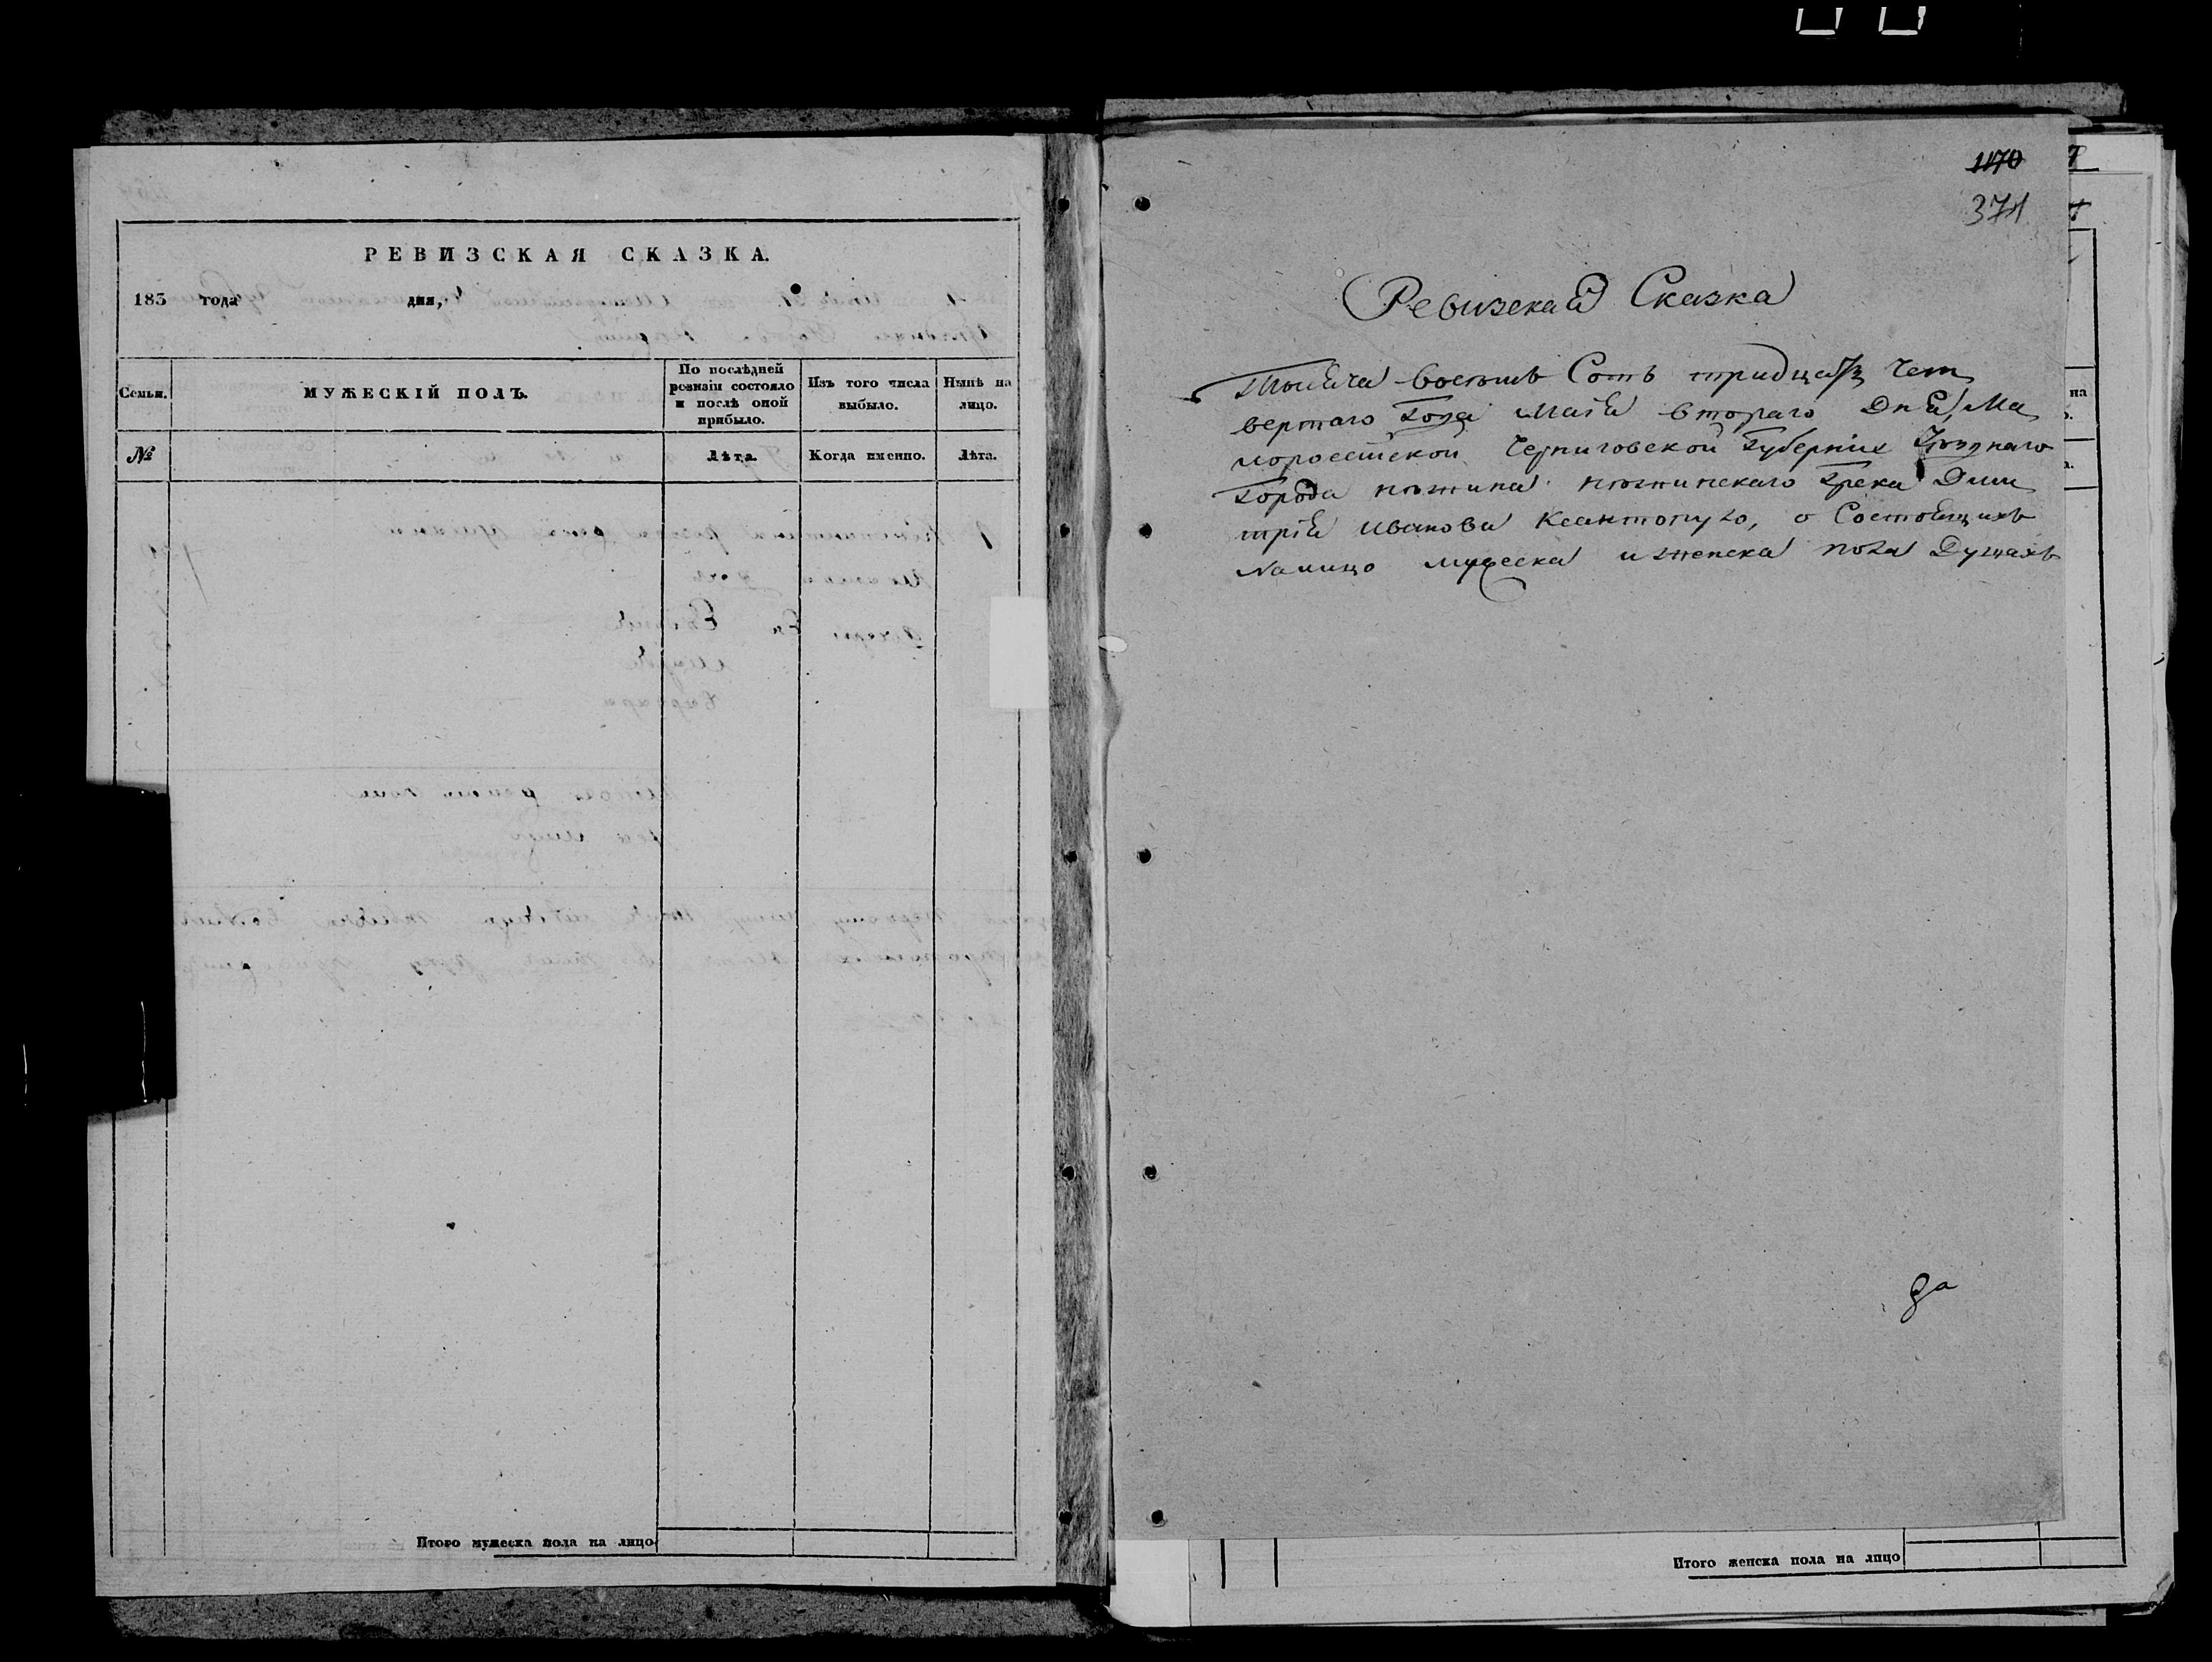 РЕВИЗСКАЯ СКАЗКА.
183 года дня,
Семьи.
МУЖЕСКІЙ ПОЛЪ.
По послѣдней ревизіи состояло и послѣ оной прибыло.
Изъ того числа выбыло.
Нынѣ на лицо.
№
Лѣта.
Когда именно.
Лѣта.
Итого мужеска пола на лицо
1170
371
Ревизская Сказка
Тысяча восемь Сотъ тридцать чет
вертаго Года маія втораго Дня, Ма
лоросійской Черниговской Губерніи Уѣзднаго
Города нѣжина нѣжинскаго Грека Дми
трія иванова Ксантопуло, о Состоящихъ
налицо мужеска и женска пола Душахъ
да
на
Итого женска пола на лицо